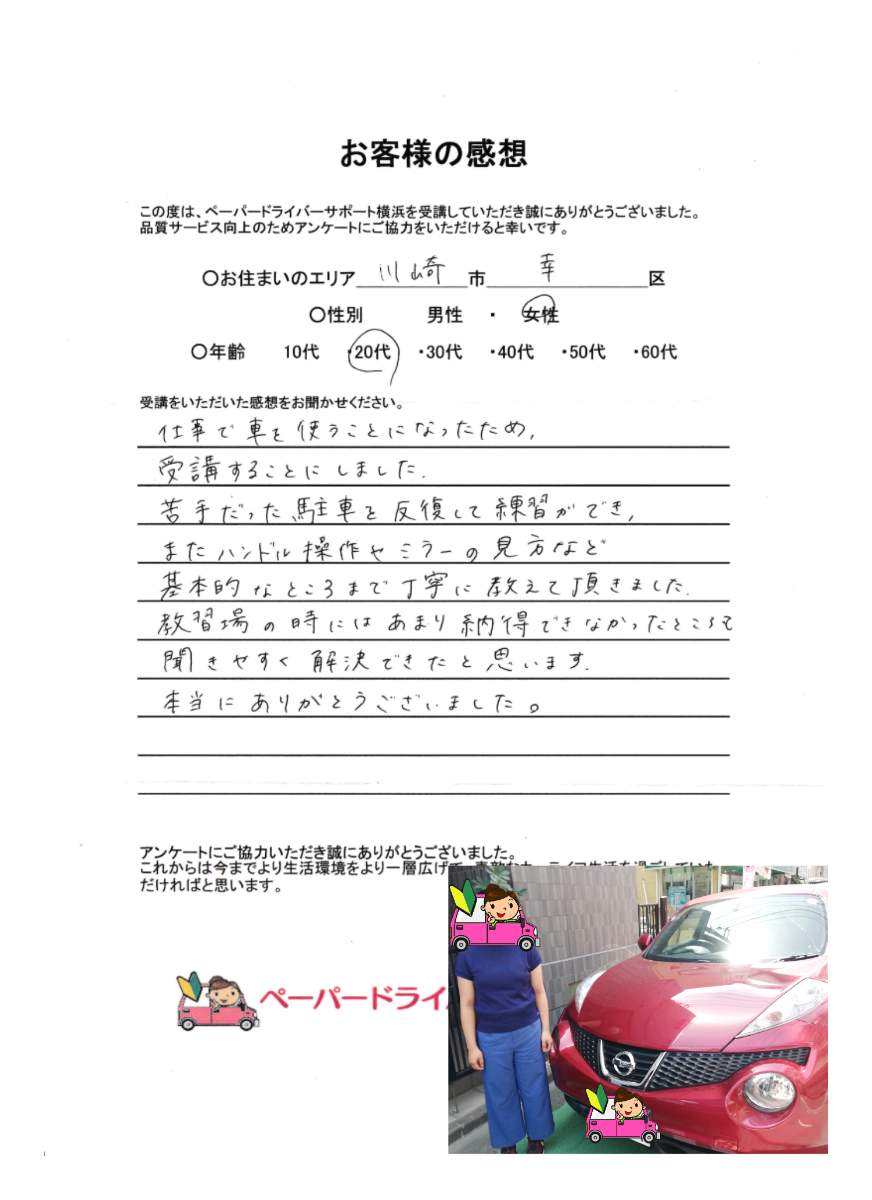 お客様の感想
この度は、ペーパードライバーサポート横浜を受講していただき誠にありがとうございました。
品質サービス向上のためアンケートにご協力をいただけると幸いです。
〇お住まいのエリア 川崎 市 幸 区
〇性別 男性 ・ 女性
〇年齢 10代 ・20代 ・30代 ・40代 ・50代 ・60代
受講をいただいた感想をお聞かせください。
仕事で車を使うことになったため、
受講することにしました.
苦手だった駐車を反復して練習ができ、
またハンドル操作やミラーの見方など
基本的なところまで丁寧に教えて頂きました.
教習場の時にはあまり納得できなかったところも
聞きやすく解決できたと思います.
本当にありがとうございました。
アンケートにご協力いただき誠にありがとうございました。
これからは今までより生活環境をより一層広げて、素敵なカーライフ生活を過ごしていた
だければと思います。
ペーパードライ